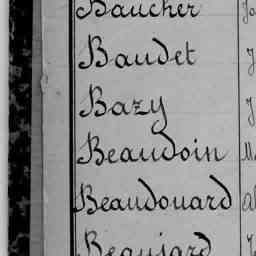 Baucher
Baudet
Bazy
Beaudoin
Beaudouard
Beaujard